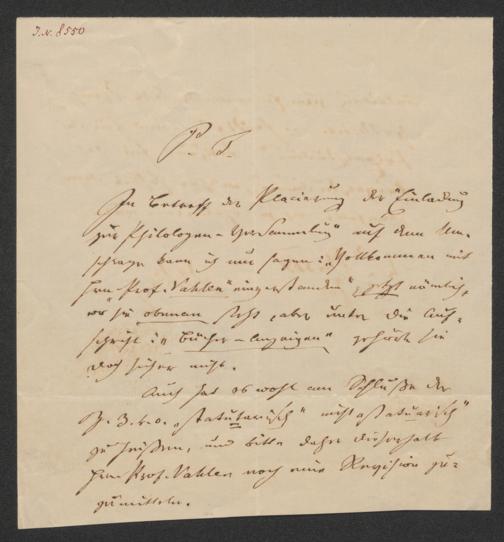 J. N. 8550
P. T.
In Betreff der Placierung der "Einladung
zur Philologen-Versammlung" auf dem Um-
schlage kann ich nur sagen: "Vollkommen mit
Hrn. Prof. Vahlen einverstanden", jetzt nämlich,
wo sie obenan steht, aber unter die Auf-
schrift: "Bücher-Anzeigen" gehört sie
doch sicher nicht.
Auch hat es wohl am Schluße der
Z. 3. v. o. "statutarisch" nicht "statuarisch"
zu heißen, und bitte daher dieserhalb
Hrn. Prof. Vahlen noch eine Revision zu-
zumitteln.